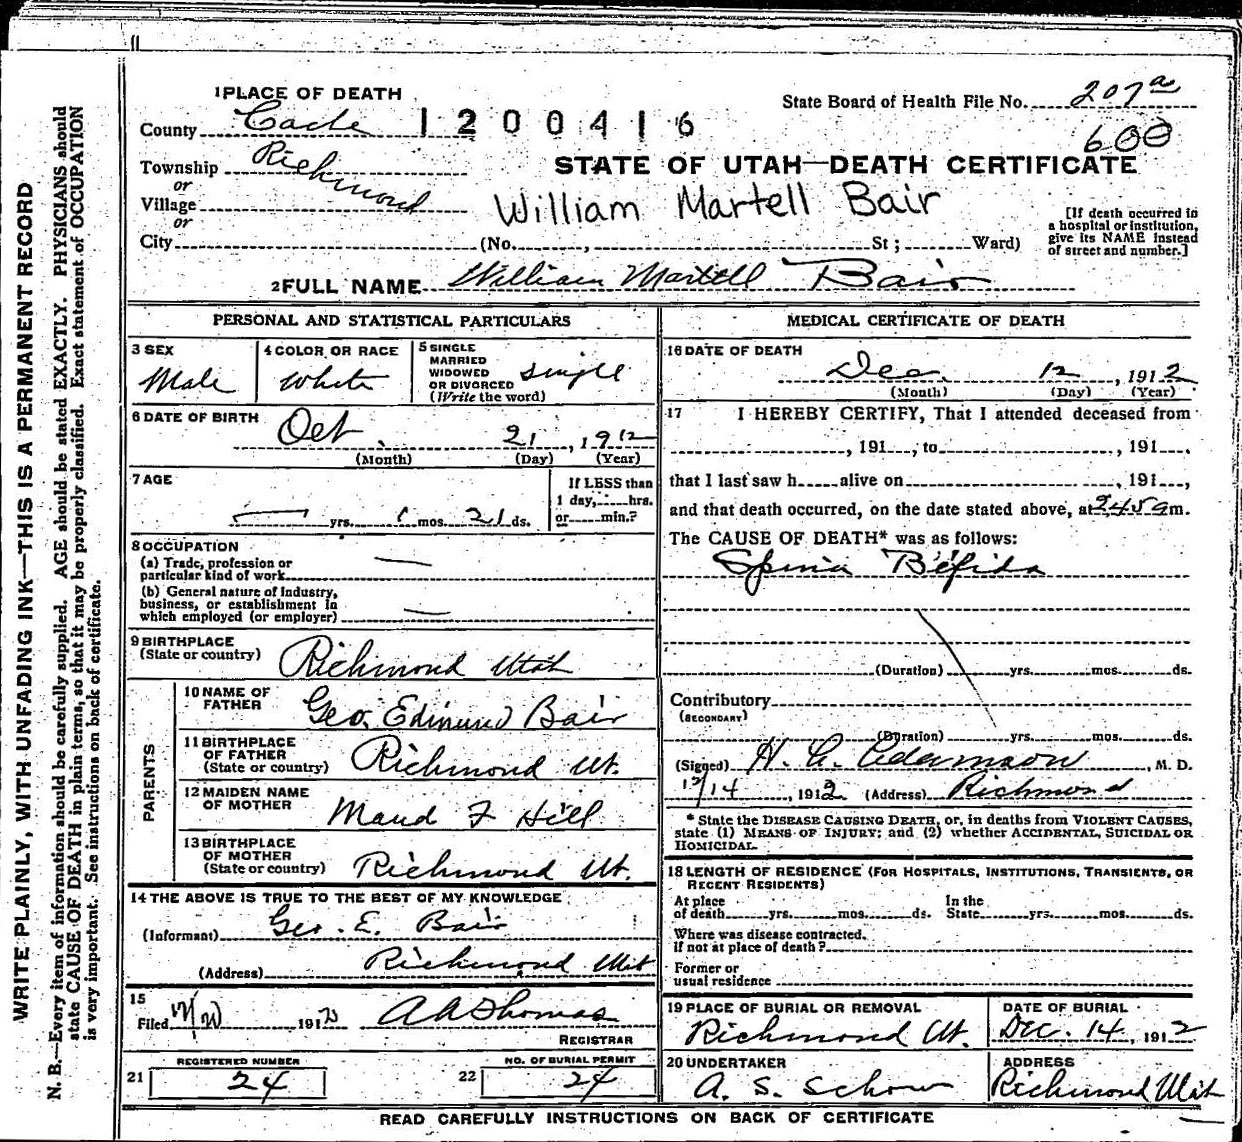 1 PLACE OF DEATH
State Board of Health File No. 207a
County Cache 1200416
600
Township Richmond
STATE OF UTAH—DEATH CERTIFICATE
or
Village
William Martell Bair
or
City (No. , St ; Ward)
[If death occurred in
a hospital or institution,
give its NAME instead
of street and number.]
2 FULL NAME William Martell Bair
PERSONAL AND STATISTICAL PARTICULARS
3 SEX
Male
4 COLOR OR RACE
White
5 SINGLE
MARRIED
WIDOWED
OR DIVORCED
(Write the word)
single
6 DATE OF BIRTH
Oct. 21, 1912
(Month) (Day) (Year)
7 AGE
— yrs. 1 mos. 21 ds.
If LESS than
1 day, hrs.
or min.?
8 OCCUPATION
(a) Trade, profession or
particular kind of work —
(b) General nature of Industry,
business, or establishment in
which employed (or employer) —
9 BIRTHPLACE
(State or country) Richmond Utah
PARENTS
10 NAME OF
FATHER Geo. Edmund Bair
11 BIRTHPLACE
OF FATHER
(State or country) Richmond Ut.
12 MAIDEN NAME
OF MOTHER Maud F Hill
13 BIRTHPLACE
OF MOTHER
(State or country) Richmond Ut.
14 THE ABOVE IS TRUE TO THE BEST OF MY KNOWLEDGE
(Informant) Geo. E. Bair
(Address) Richmond, Utah
15
Filed 191 A A Thomas
REGISTRAR
REGISTERED NUMBER
21 24
NO. OF BURIAL PERMIT
22 24
MEDICAL CERTIFICATE OF DEATH
16 DATE OF DEATH
Dec. 12, 1912
(Month) (Day) (Year)
17 I HEREBY CERTIFY, That I attended deceased from
, 191 , to , 191 .
that I last saw h alive on , 191 ,
and that death occurred, on the date stated above, at 245 a m.
The CAUSE OF DEATH* was as follows:
Spina Bifida
(Duration) yrs. mos. ds.
Contributory
(SECONDARY)
(Duration) yrs. mos. ds.
(Signed) H. A. Adamson, M. D.
12/14, 1912 (Address) Richmond
* State the DISEASE CAUSING DEATH, or, in deaths from VIOLENT CAUSES,
state (1) MEANS OF INJURY; and (2) whether ACCIDENTAL, SUICIDAL OR
HOMICIDAL.
18 LENGTH OF RESIDENCE (FOR HOSPITALS, INSTITUTIONS, TRANSIENTS, OR
RECENT RESIDENTS)
At place
of death yrs. mos. ds.
In the
State yrs. mos. ds.
Where was disease contracted.
if not at place of death?
Former or
usual residence
19 PLACE OF BURIAL OR REMOVAL
Richmond Ut.
DATE OF BURIAL
DEC. 14, 1912
20 UNDERTAKER
A. S. Schow
ADDRESS
Richmond Utah
READ CAREFULLY INSTRUCTIONS ON BACK OF CERTIFICATE
WRITE PLAINLY, WITH UNFADING INK—THIS IS A PERMANENT RECORD
N. B.—Every item of information should be carefully supplied. AGE should be stated EXACTLY. PHYSICIANS should
state CAUSE OF DEATH in plain terms, so that it may be properly classified. Exact statement of OCCUPATION
is very important. See instructions on back of certificate.